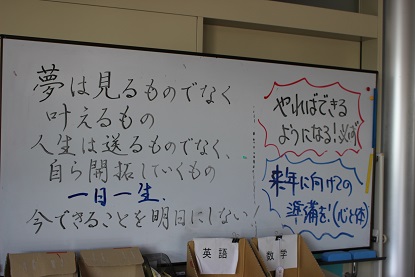 夢は見るものでなく
叶えるもの
人生は送るものでなく、
自ら開拓していくもの
一日一生.
今できることを明日にしない!
やればできる
ようになる!必ず
来年に向けての
準備を!(心と体)
英語
数学